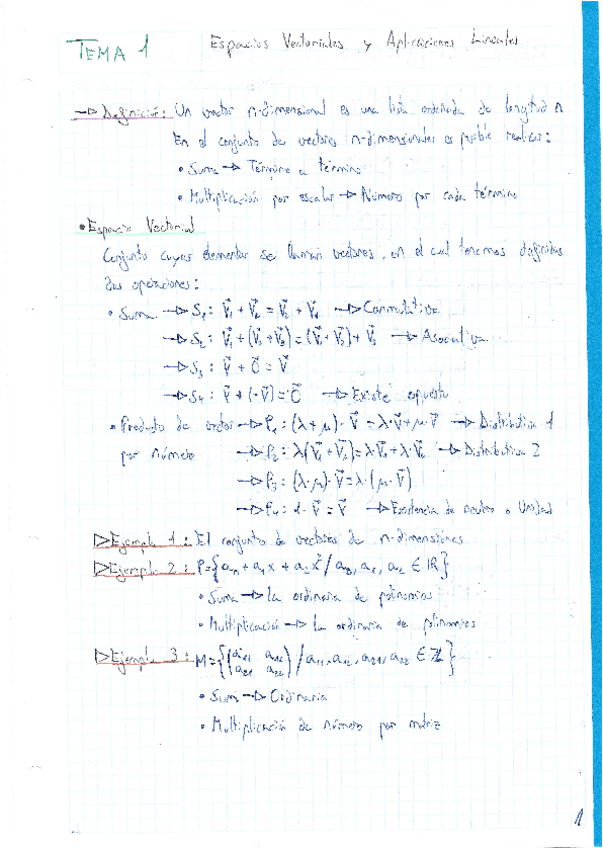 TEMA 1 Espacios Vectoriales y Aplicaciones Lineales
→ Definición: Un vector n-dimensional es una lista ordenada de longitud n
En el conjunto de vectores n-dimensionales es posible realizar:
• Suma → Término a término
• Multiplicación por escalar → Número por cada término
• Espacio Vectorial
Conjunto cuyos elementos se llaman vectores, en el cual tenemos definidas
dos operaciones:
• Suma → S₁: V⃗₁ + V⃗₂ = V⃗₂ + V⃗₁ → Conmutativa
→ S₂: V⃗₁ + (V⃗₂ + V⃗₃) = (V⃗₁ + V⃗₂) + V⃗₃ → Asociativa
→ S₃: V⃗ + O⃗ = V⃗
→ S₄: V⃗ + (-V⃗) = O⃗ → Existe opuesto
• Producto de vector → P₁: (λ + μ) · V⃗ = λ · V⃗ + μ · V⃗ → Distributiva 1
por número → P₂: λ(V⃗₁ + V⃗₂) = λ · V⃗₁ + λ · V⃗₂ → Distributiva 2
→ P₃: (λ · μ) · V⃗ = λ · (μ · V⃗)
→ P₄: 1 · V⃗ = V⃗ → Existencia de neutro o Unidad
▷ Ejemplo 1: El conjunto de vectores de n-dimensiones
▷ Ejemplo 2: P = {a₀ + a₁x + a₂x² / a₀, a₁, a₂ ∈ ℝ}
• Suma → la ordinaria de polinomios
• Multiplicación → la ordinaria de polinomios
▷ Ejemplo 3: M = {(a₁₁ a₁₂ / a₂₁ a₂₂) / a₁₁, a₁₂, a₂₁, a₂₂ ∈ ℤ}
• Suma → Ordinaria
• Multiplicación de número por matriz
1